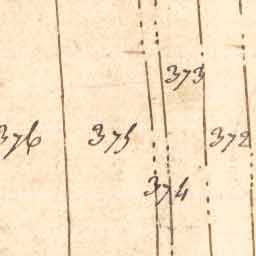 373
376 375 372
374